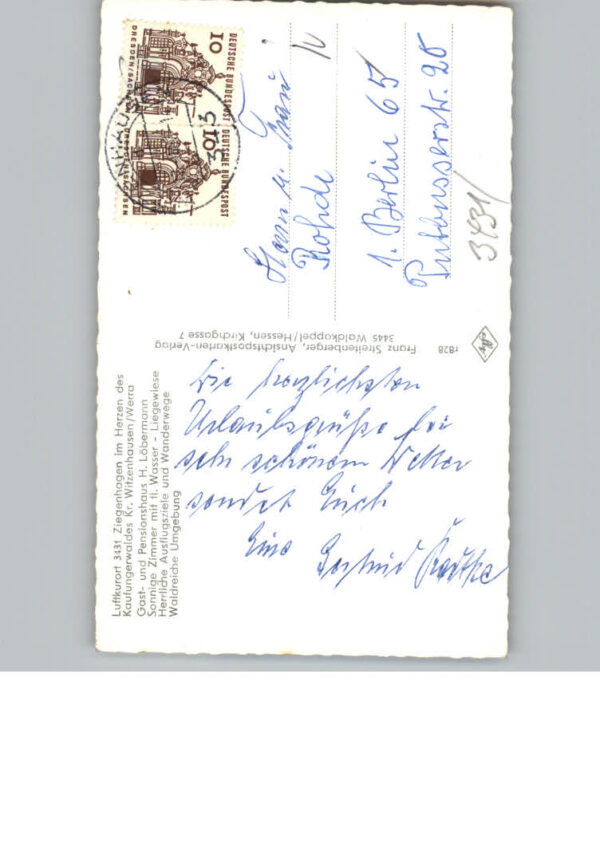 Luftkurort 3431 Ziegenhagen im Herzen des
Kaufungerwaldes Kr. Witzenhausen/Werra
Gast- und Pensionshaus H. Löbermann
Sonnige Zimmer mit fl. Wasser - Liegewiese
Herrliche Ausflugsziele und Wanderwege
Waldreiche Umgebung
Die herzlichsten
Urlaubsgrüße bei
sehr schönem Wetter
sendet Euch
Eure Gertrud
r828
Franz Streitenberger, Ansichtspostkarten-Verlag
3445 Waldkappel/Hessen, Kirchgasse 7
DEUTSCHE BUNDESPOST
10
DRESDEN/SACHSEN
DEUTSCHE BUNDESPOST
10
DRESDEN/SACHSEN
3413
Herrn u. Frau
Rohde
1. Berlin 65
Putbusserstr. 20
3431/